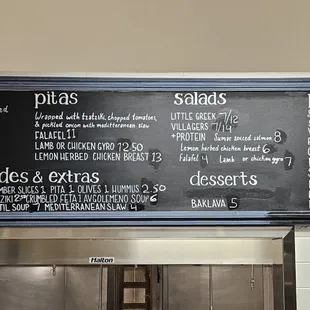 pitas
Wrapped with tzatziki, chopped tomatoes,
& pickled onion with mediterranean slaw
FALAFEL 11
LAMB OR CHICKEN GYRO 12.50
LEMON HERBED CHICKEN BREAST 13
des & extras
MBER SLICES 1 PITA 1 OLIVES 1 HUMMUS 2.50
ZIKI CRUMBLED FETA 1 AVGOLEMENO SOUP 6
TIL SOUP 7 MEDITERRANEAN SLAW 4
salads
LITTLE GREEK 7/12
VILLAGERS 7/14
+PROTEIN Sumac spiced salmon 8
Lemon herbed chicken breast 6
Falafel 4 Lamb or chicken gyro 7
desserts
BAKLAVA 5
Halton